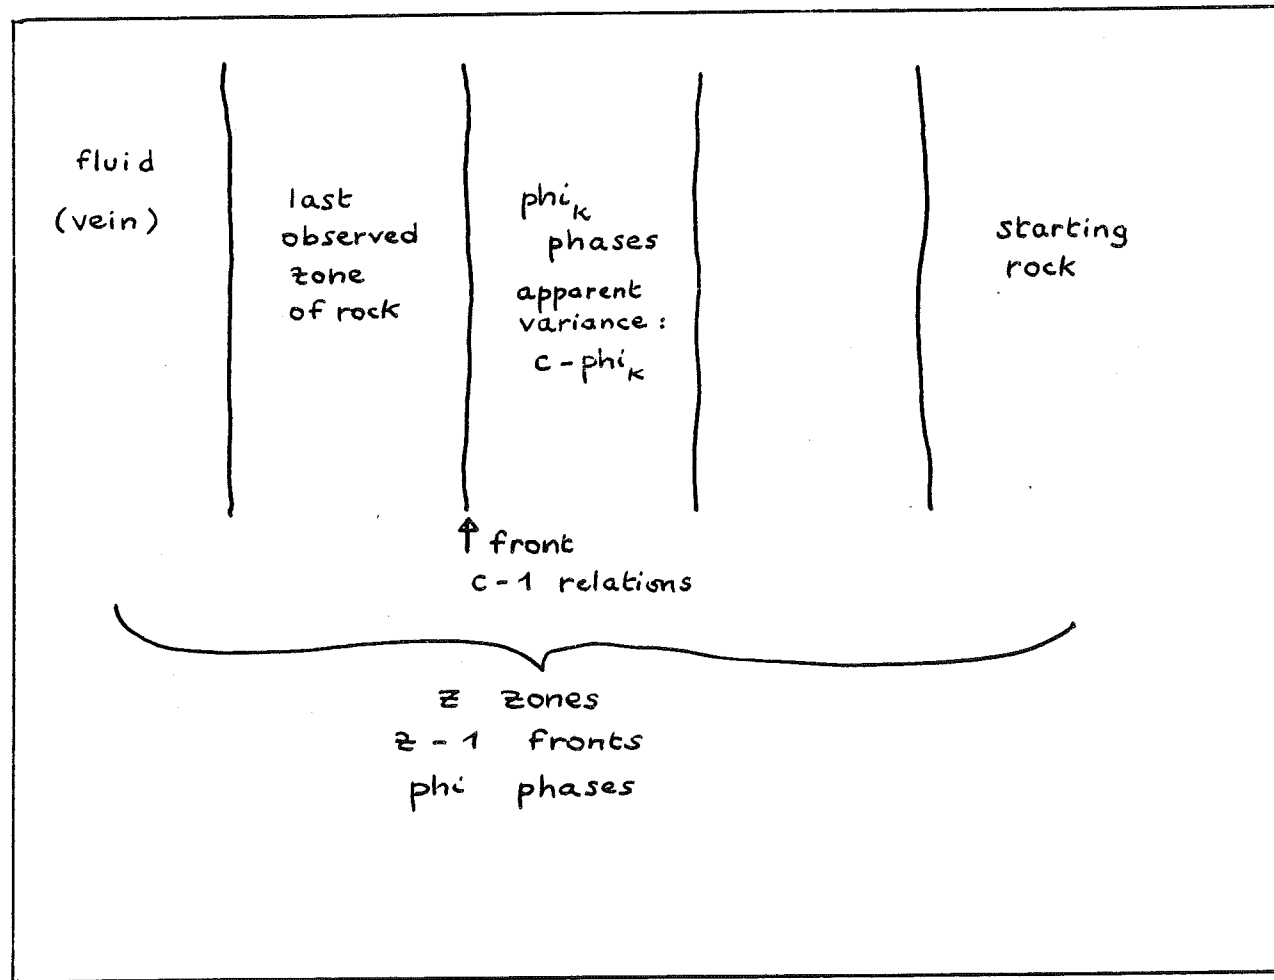 fluid
(vein)
last
observed
zone
of rock
phi_k
phases
apparent
variance :
c - phi_k
starting
rock
front
c - 1 relations
z zones
z - 1 fronts
phi phases